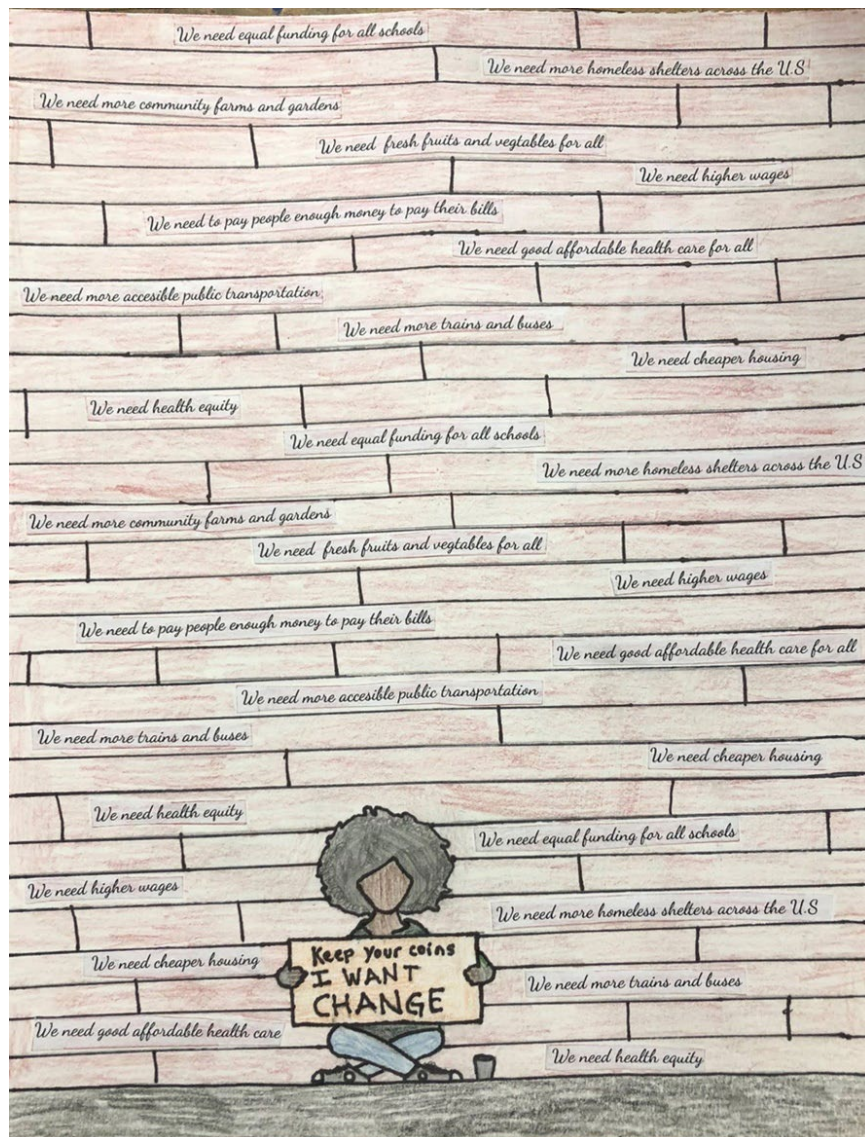 We need equal funding for all schools
We need more homeless shelters across the U.S
We need more community farms and gardens
We need fresh fruits and vegtables for all
We need higher wages
We need to pay people enough money to pay their bills
We need good affordable health care for all
We need more accesible public transportation
We need more trains and buses
We need cheaper housing
We need health equity
We need equal funding for all schools
We need more homeless shelters across the U.S
We need more community farms and gardens
We need fresh fruits and vegtables for all
We need higher wages
We need to pay people enough money to pay their bills
We need good affordable health care for all
We need more accesible public transportation
We need more trains and buses
We need cheaper housing
We need health equity
We need equal funding for all schools
We need higher wages
We need more homeless shelters across the U.S
Keep your coins
I WANT
CHANGE
We need cheaper housing
We need more trains and buses
We need good affordable health care
We need health equity